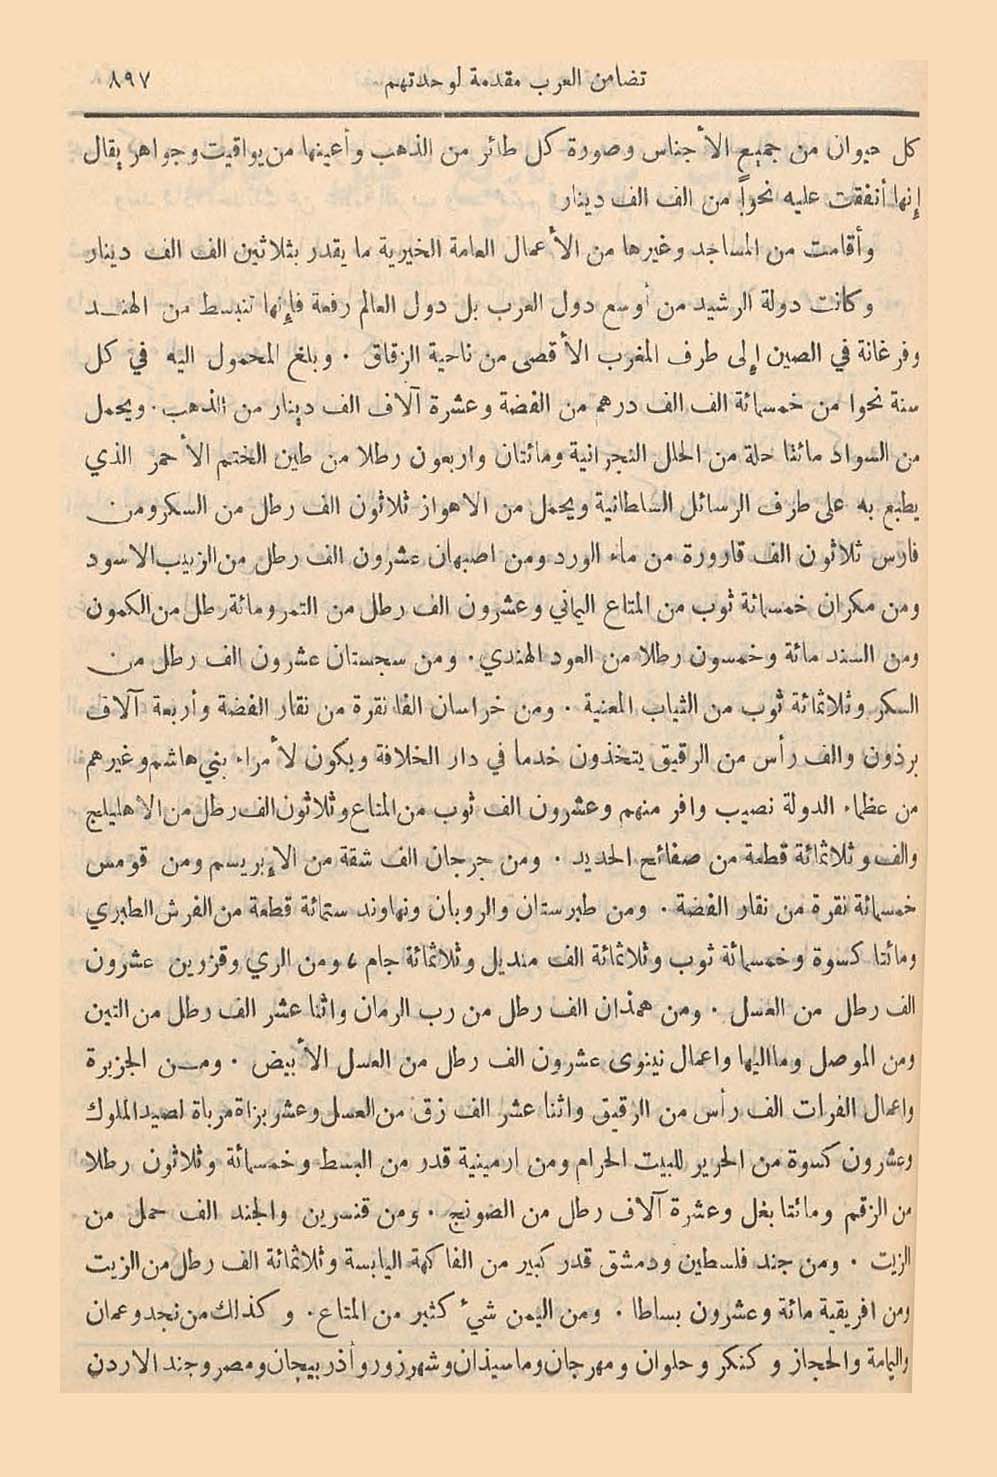 تضامن العرب مقدمة لوحدتهم ٨٩٧
كل حيوان من جميع الأجناس وصورة كل طائر من الذهب وأعينها من يواقيت وجواهر يقال
إنها أنفقت عليه نحواً من الف الف دينار
وأقامت من المساجد وغيرها من الأعمال العامة الخيرية ما يقدر بثلاثين الف الف دينار
وكانت دولة الرشيد من أوسع دول العرب بل دول العالم رفعة فإنها تنبسط من الهنـد
وفرغانة في الصين إلى طرف المغرب الأقصى من ناحية الزقاق . وبلغ المحمول اليه في كل
سنة نحوا من خمسمائة الف الف درهم من الفضة وعشرة آلاف الف دينار من الذهب . ويحمل
من السواد مائتا حلة من الحلل النجرانية ومائتان واربعون رطلا من طين الختم الأحمر الذي
يطبع به على طرف الرسائل السلطانية ويحمل من الاهواز ثلاثون الف رطل من السكر ومن
فارس ثلاثون الف قارورة من ماء الورد ومن اصبهان عشرون الف رطل من الزبيب الاسود
ومن مكران خمسمائة ثوب من المتاع اليماني وعشرون الف رطل من التمر ومائة رطل من الكمون
ومن السند مائة وخمسون رطلا من العود الهندي . ومن سجستان عشرون الف رطل من
السكر وثلاثمائة ثوب من الثياب المعنية . ومن خراسان الفا نقرة من نقار الفضة وأربعة آلاف
برذون والف رأس من الرقيق يتخذون خدما في دار الخلافة ويكون لأمراء بني هاشم وغيرهم
من عظماء الدولة نصيب وافر منهم وعشرون الف ثوب من المتاع وثلاثون الف رطل من الاهليلج
والف وثلاثمائة قطعة من صفائح الحديد . ومن جرجان الف شقة من الإبريسم ومن قومس
خمسمائة نقرة من نقار الفضة . ومن طبرستان والرويان ونهاوند ستمائة قطعة من الفرش الطبري
ومائتا كسوة وخمسمائة ثوب وثلاثمائة الف منديل وثلاثمائة جام ، ومن الري وقزوين عشرون
الف رطل من العسل . ومن همذان الف رطل من رب الرمان واثنا عشر الف رطل من التين
ومن الموصل وما اليها واعمال نينوى عشرون الف رطل من العسل الأبيض . ومـن الجزيرة
واعمال الفرات الف رأس من الرقيق واثنا عشر الف زق من العسل وعشر بزاة مرباة لصيد الملوك
وعشرون كسوة من الحرير للبيت الحرام ومن ارمينية قدر من البسط وخمسمائة وثلاثون رطلا
من الزقم ومائتا بغل وعشرة آلاف رطل من الصونج . ومن قنسرين والجند الف حمل من
الزيت . ومن جند فلسطين ودمشق قدر كبير من الفاكهة اليابسة وثلاثمائة الف رطل من الزيت
ومن افريقية مائة وعشرون بساطا . ومن اليمن شيء كثير من المتاع . وكذلك من نجد وعمان
واليمامة والحجاز و كنكر وحلوان ومهرجان وماسيذان وشهرزور وأذربيجان ومصر وجند الاردن